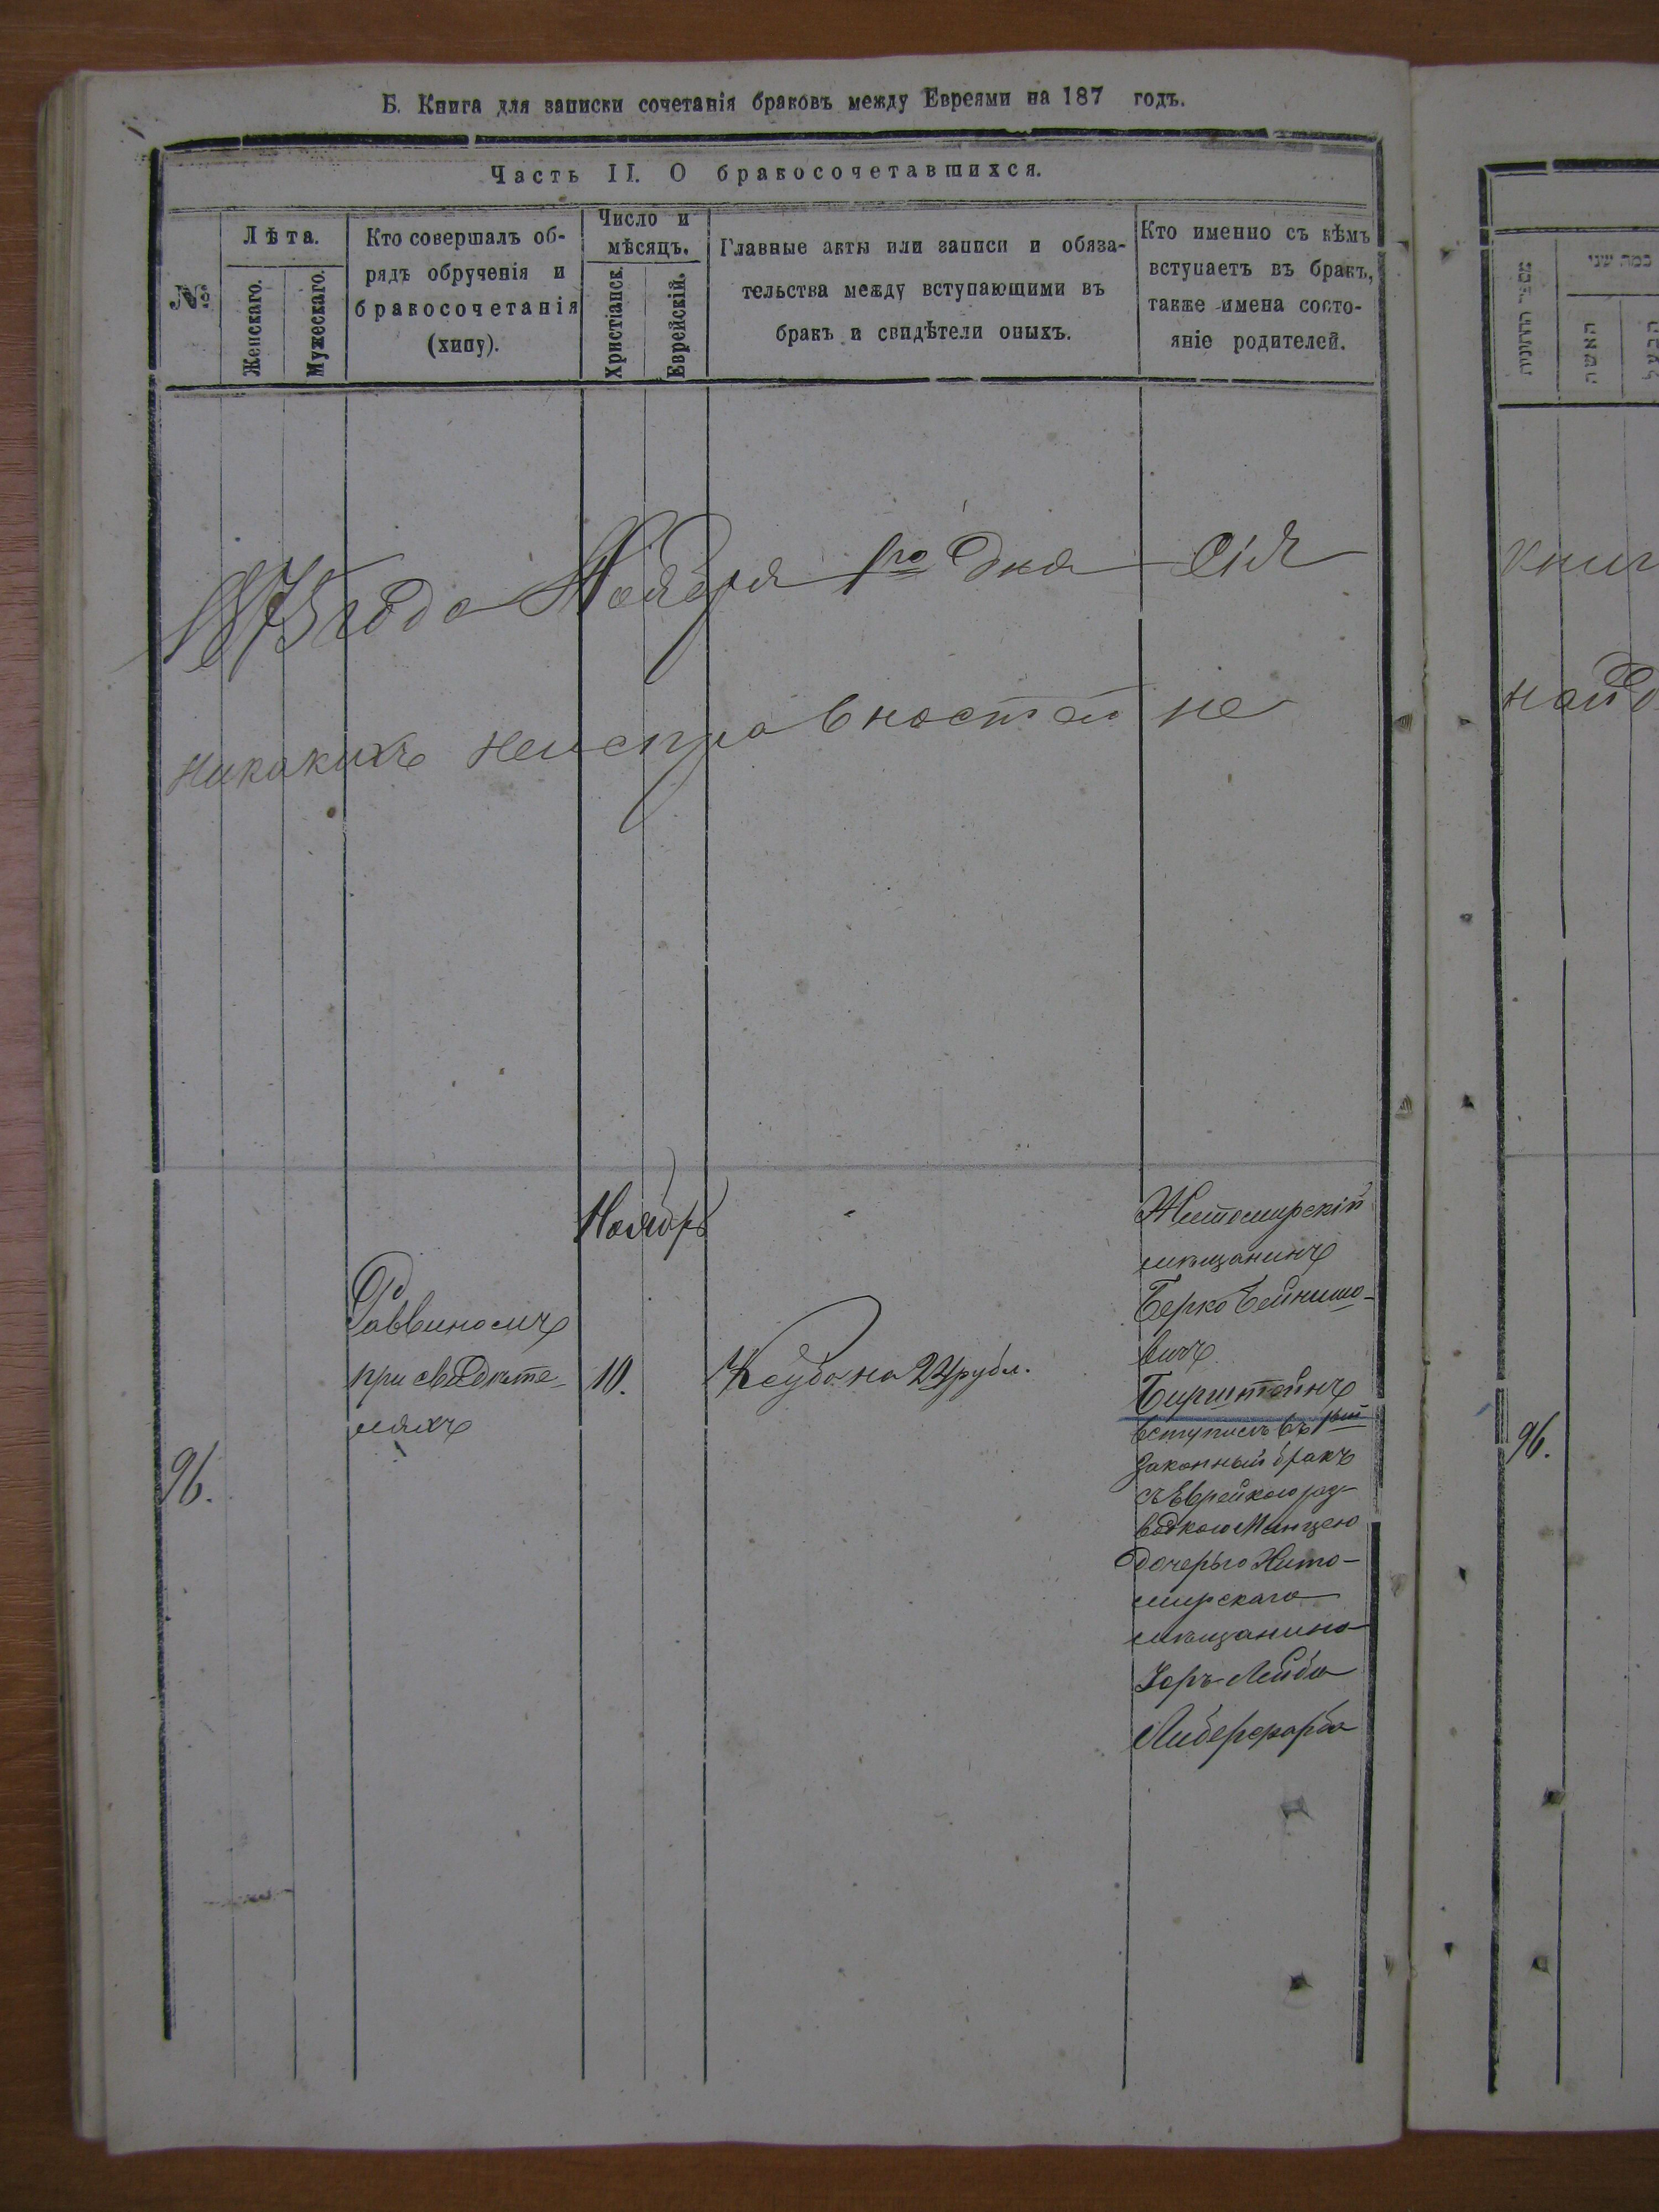 Б. Книга для записки сочетанія браковъ между Евреями на 187 годъ.
Часть II. О бракосочетавшихся.
№
Лѣта.
Женскаго.
Мужескаго.
Кто совершалъ об-
рядъ обрученія и
бракосочетанія
(хипу).
Число и
мѣсяцъ.
Христіанск.
Еврейскій.
Главные акты или записи и обяза-
тельства между вступающими въ
бракъ и свидѣтели оныхъ.
Кто именно съ кѣмъ
вступаетъ въ бракъ,
также имена состо-
яніе родителей.
1875 года Ноября 1го дня сія
никакихъ неисправностей не
96.
Раввиномъ
при свидѣте-
ляхъ
Ноябрь
10.
Ксуба на рубл.
Житомирскій
мѣщанинъ
Берко Бейнишо-
вичъ
Бирштейнъ
вступилъ въ 1ый
законный бракъ
съ Еврейкою раз-
водкою
дочерью Жито-
мирскаго
мѣщанина
Лейба
Либерфарба
מספר החתונות
כמה שני
האשה
הבעל
книг
найд
96.